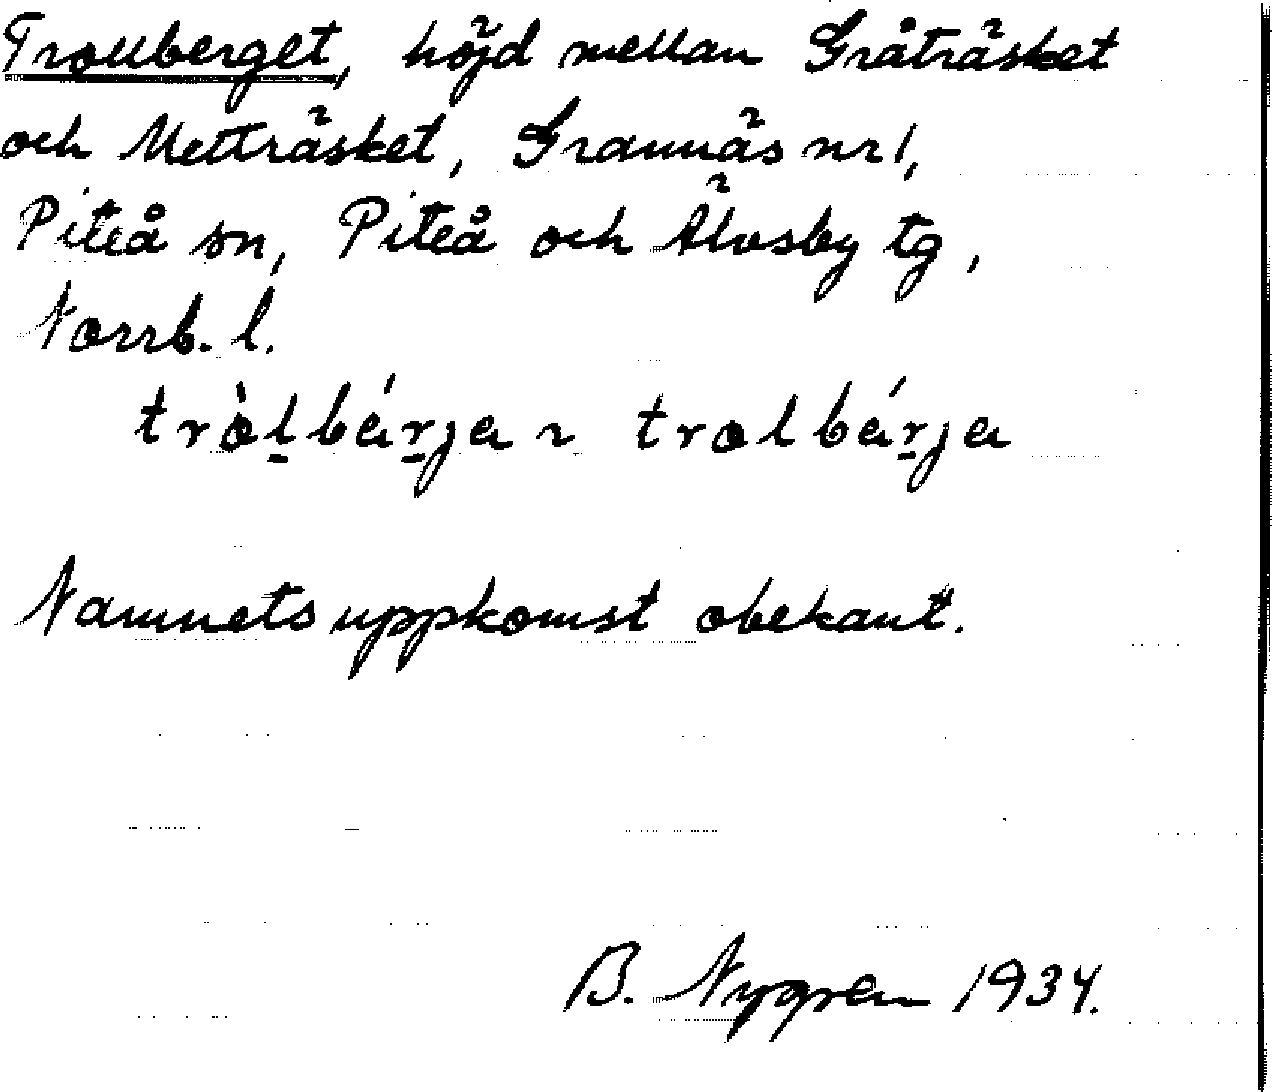 Trollberget, höjd mellan Gråträsket
och Metträsket, Grannäs nr 1,
Piteå sn, Piteå och Älvsby tg,
Norrb. l.
tròl̲bár̲ja ~ trolbár̲ja
Namnets uppkomst obekant.
B. Nygren 1934.